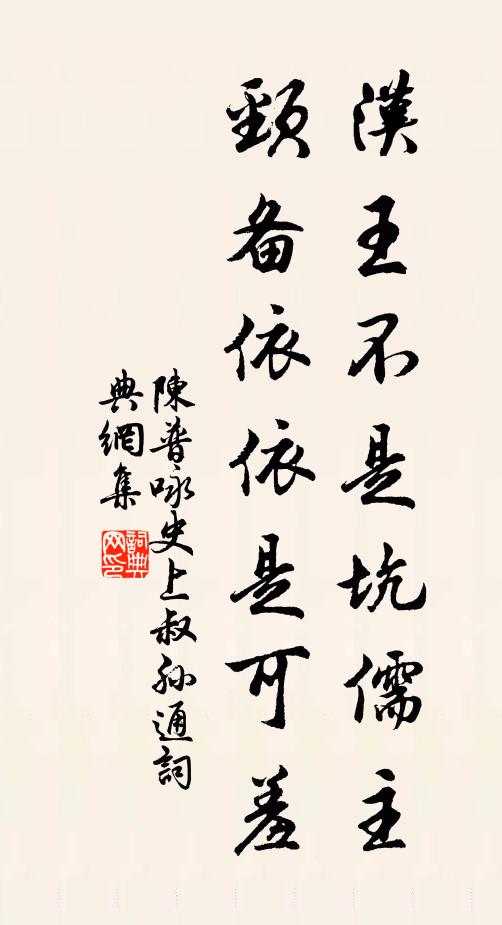 漢王不是坑儒主
頸备依依是可羞
陳普咏史上叔孫通詞
典網集
詞典
网印